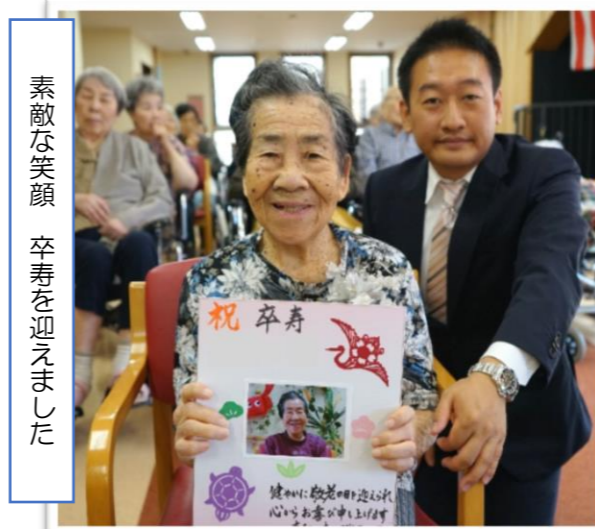 素敵な笑顔　卒寿を迎えました
祝 卒寿
健やかに敬老の日を迎えられ
心からお喜び申し上げます